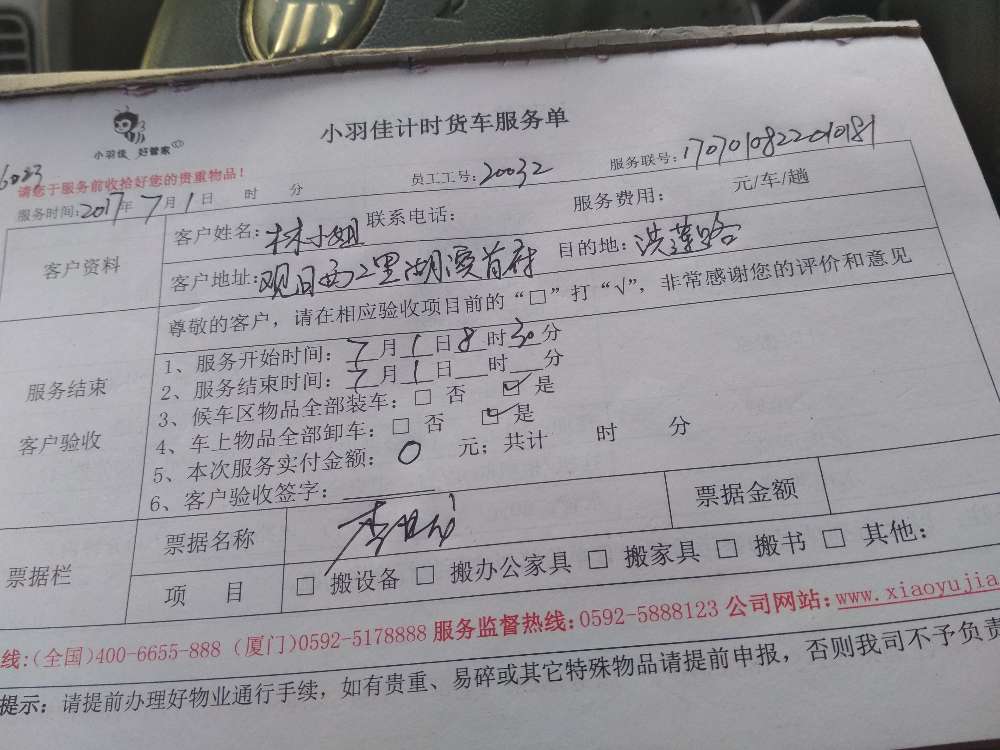 小羽佳计时货车服务单
小羽佳 好管家
6023
请您于服务前收拾好您的贵重物品！
员工工号：20032
服务联号：170701082201 0181
服务时间：2017年7月1日 时 分
客户资料
客户姓名：林小姐 联系电话： 服务费用： 元/车/趟
客户地址：观日西二里湖滨首府 目的地：洪莲路
尊敬的客户，请在相应验收项目前的“□”打“√”，非常感谢您的评价和意见
服务结束
客户验收
1、服务开始时间：7月1日8时30分
2、服务结束时间：7月1日 时 分
3、候车区物品全部装车：□ 否 ☑ 是
4、车上物品全部卸车：□ 否 ☑ 是
5、本次服务实付金额：0 元；共计 时 分
6、客户验收签字：
票据栏
票据名称
票据金额
项 目
□ 搬设备 □ 搬办公家具 □ 搬家具 □ 搬书 □ 其他：
线：（全国）400-6655-888（厦门）0592-5178888 服务监督热线：0592-5888123 公司网站：www.xiaoyujia
提示：请提前办理好物业通行手续，如有贵重、易碎或其它特殊物品请提前申报，否则我司不予负责